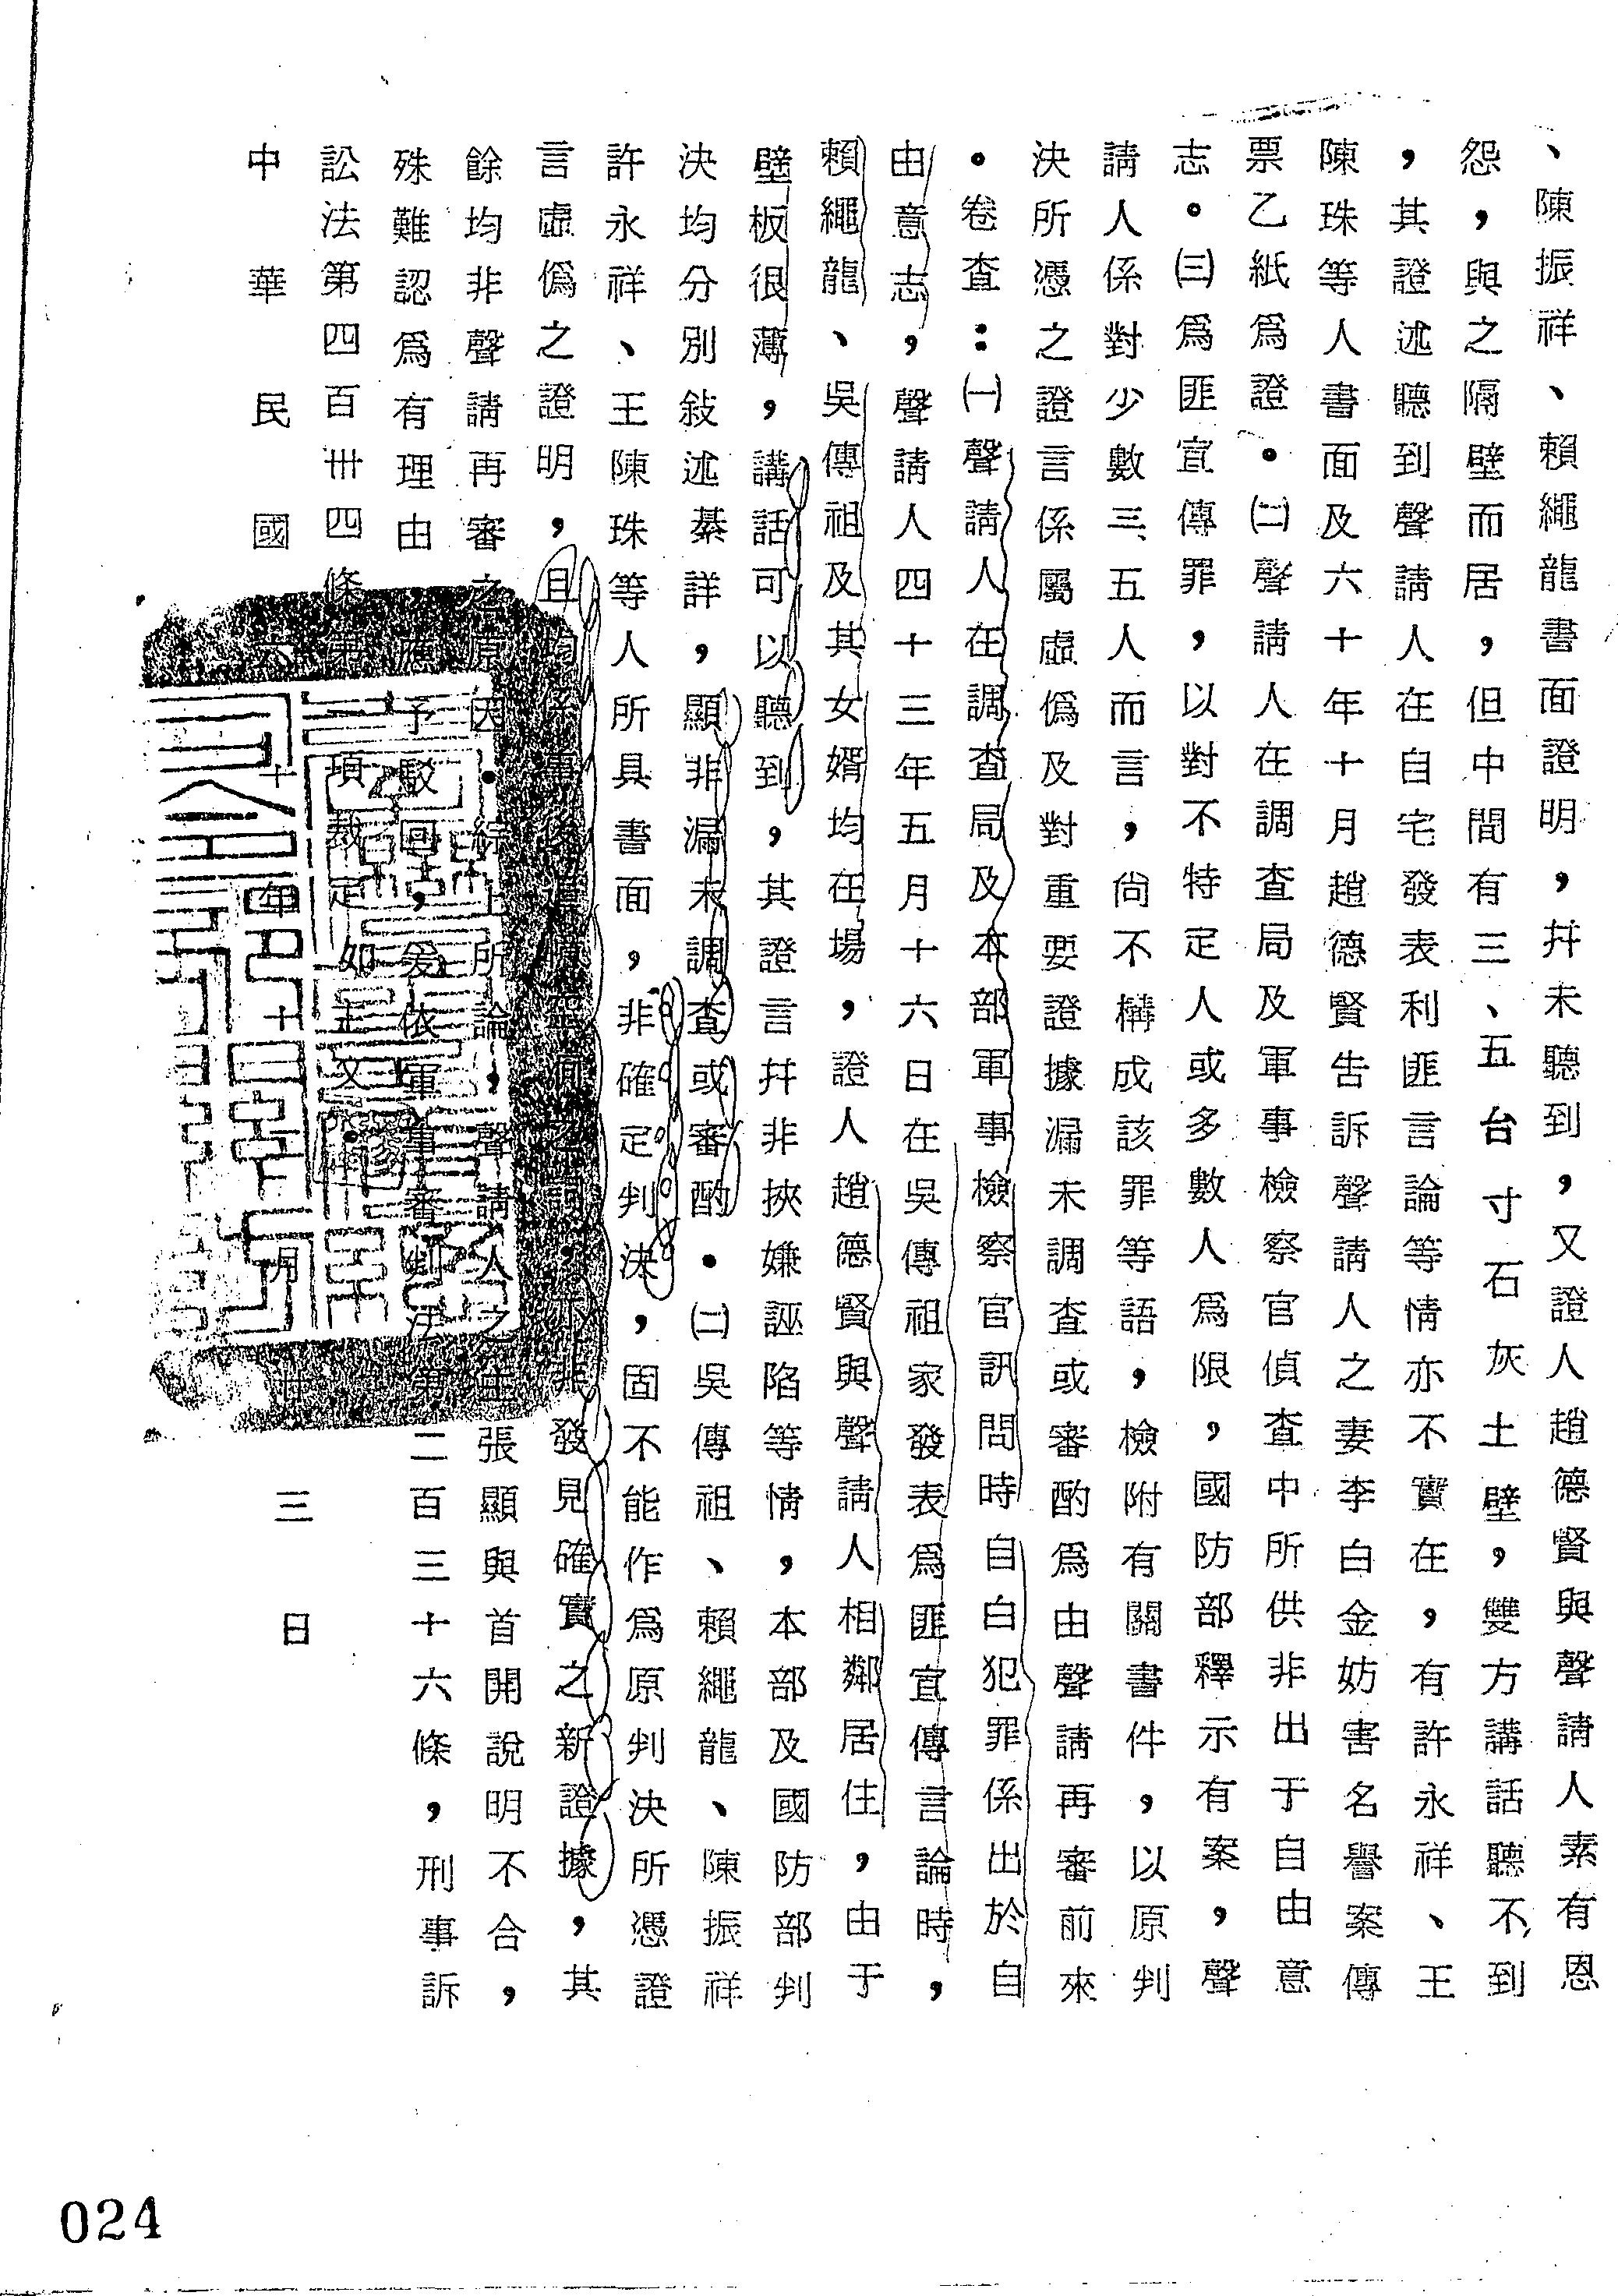 、陳振祥、賴繩龍書面證明，幷未聽到，又證人趙德賢與聲請人素有恩
怨，與之隔壁而居，但中間有三、五台寸石灰土壁，雙方講話聽不到
，其證述聽到聲請人在自宅發表利匪言論等情亦不實在，有許永祥、王
陳珠等人書面及六十年十月趙德賢告訴聲請人之妻李白金妨害名譽案傳
票乙紙為證。㈡聲請人在調查局及軍事檢察官偵查中所供非出于自由意
志。㈢為匪宣傳罪，以對不特定人或多數人為限，國防部釋示有案，聲
請人係對少數三、五人而言，尚不構成該罪等語，檢附有關書件，以原判
決所憑之證言係屬虛偽及對重要證據漏未調查或審酌為由聲請再審前來
。卷查：㈠聲請人在調查局及本部軍事檢察官訊問時自白犯罪係出於自
由意志，聲請人四十三年五月十六日在吳傳祖家發表為匪宣傳言論時，
賴繩龍、吳傳祖及其女婿均在場，證人趙德賢與聲請人相鄰居住，由于
壁板很薄，講話可以聽到，其證言幷非挾嫌誣陷等情，本部及國防部判
決均分別敍述綦詳，顯非漏未調查或審酌。㈡吳傳祖、賴繩龍、陳振祥
許永祥、王陳珠等人所具書面，非確定判決，固不能作為原判決所憑證
言虛偽之證明，且均係事後，亦非發見確實之新證據，其
餘均非聲請再審之原因。綜上所論，聲請人之主張顯與首開說明不合，
殊難認為有理由，應予駁回，爰依軍事審判法第二百三十六條，刑事訴
訟法第四百卅四條第一項裁定如主文。
中華民國六十年十月廿三日
024